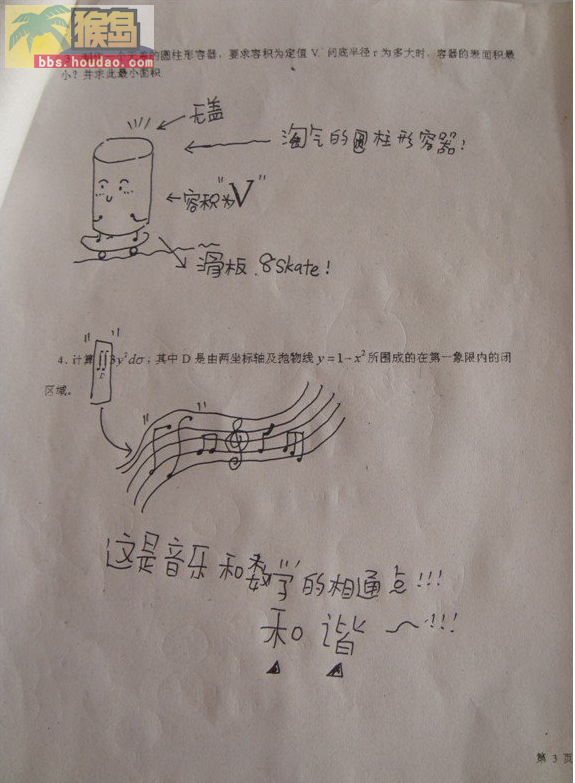 猴岛
bbs.houdao.com
的圆柱形容器，要求容积为定值 V，问底半径 r 为多大时，容器的表面积最
小？并求此最小面积
无盖
淘气的圆柱形容器！
容积为"V"
滑板.8Skate！
4. 计算∬3y²dσ，其中 D 是由两坐标轴及抛物线 y = 1 − x² 所围成的在第一象限内的闭
区域。
这是音乐和数学的相通点!!!
和谐～!!!
第 3 页